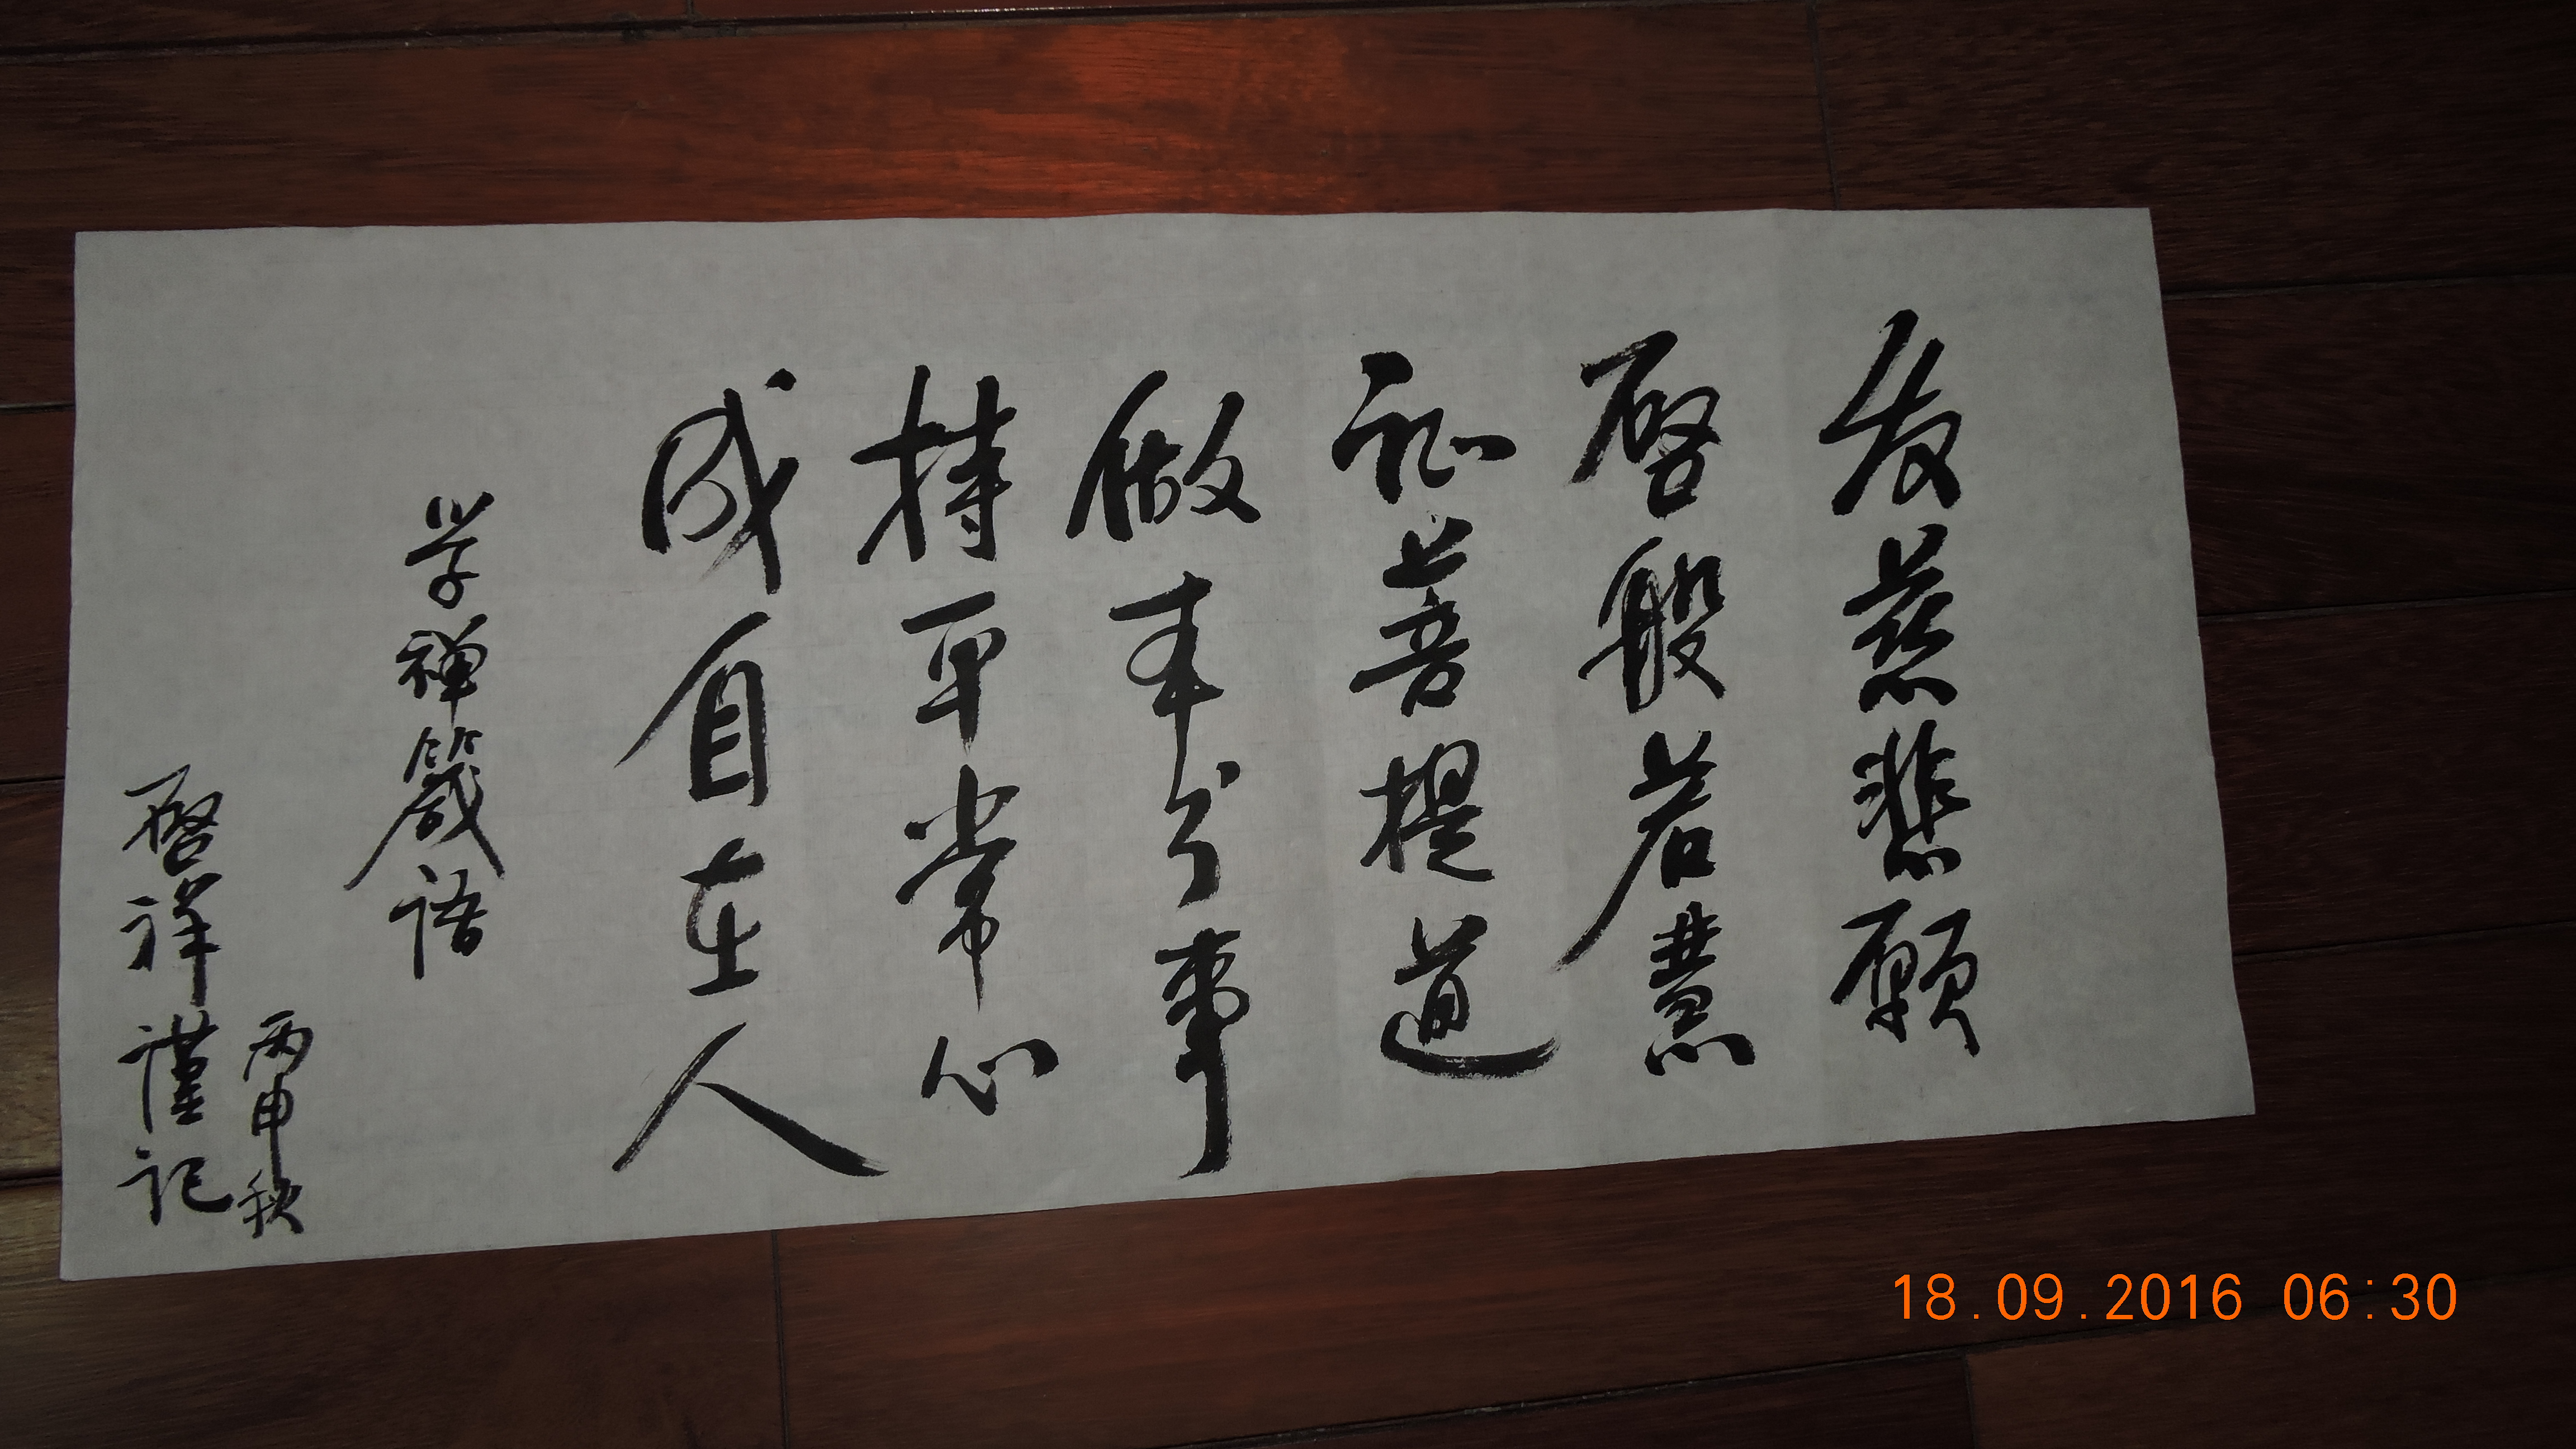 发慈悲愿
启般若慧
证菩提道
做本分事
持平常心
成自在人
学禅箴语
丙申秋
启祥谨记
18.09.2016 06:30